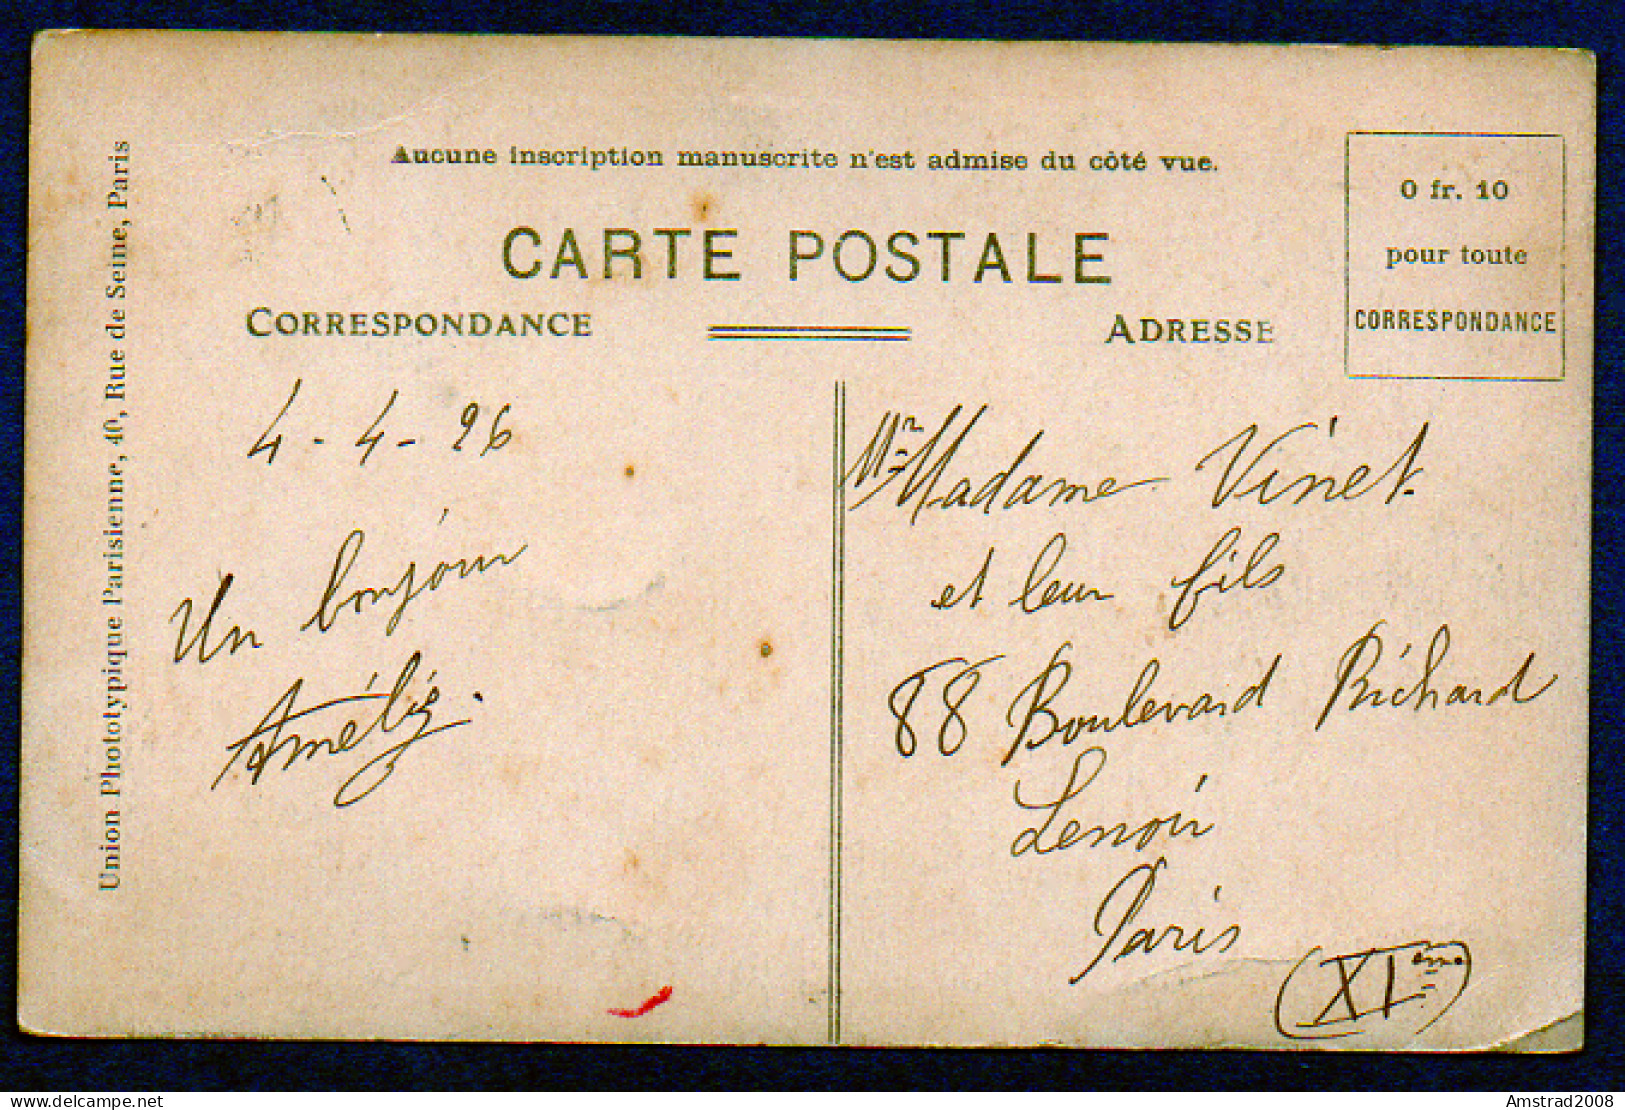 Aucune inscription manuscrite n'est admise du côté vue.
CARTE POSTALE
CORRESPONDANCE
ADRESSE
0 fr. 10
pour toute
CORRESPONDANCE
Union Phototypique Parisienne, 40, Rue de Seine, Paris
4-4-26
Un bonjour
Amélie.
Mr Madame Vinet.
et leur fils
88 Boulevard Richard
Lenoir
Paris
(XIème)
delcampe.net
Amstrad2008